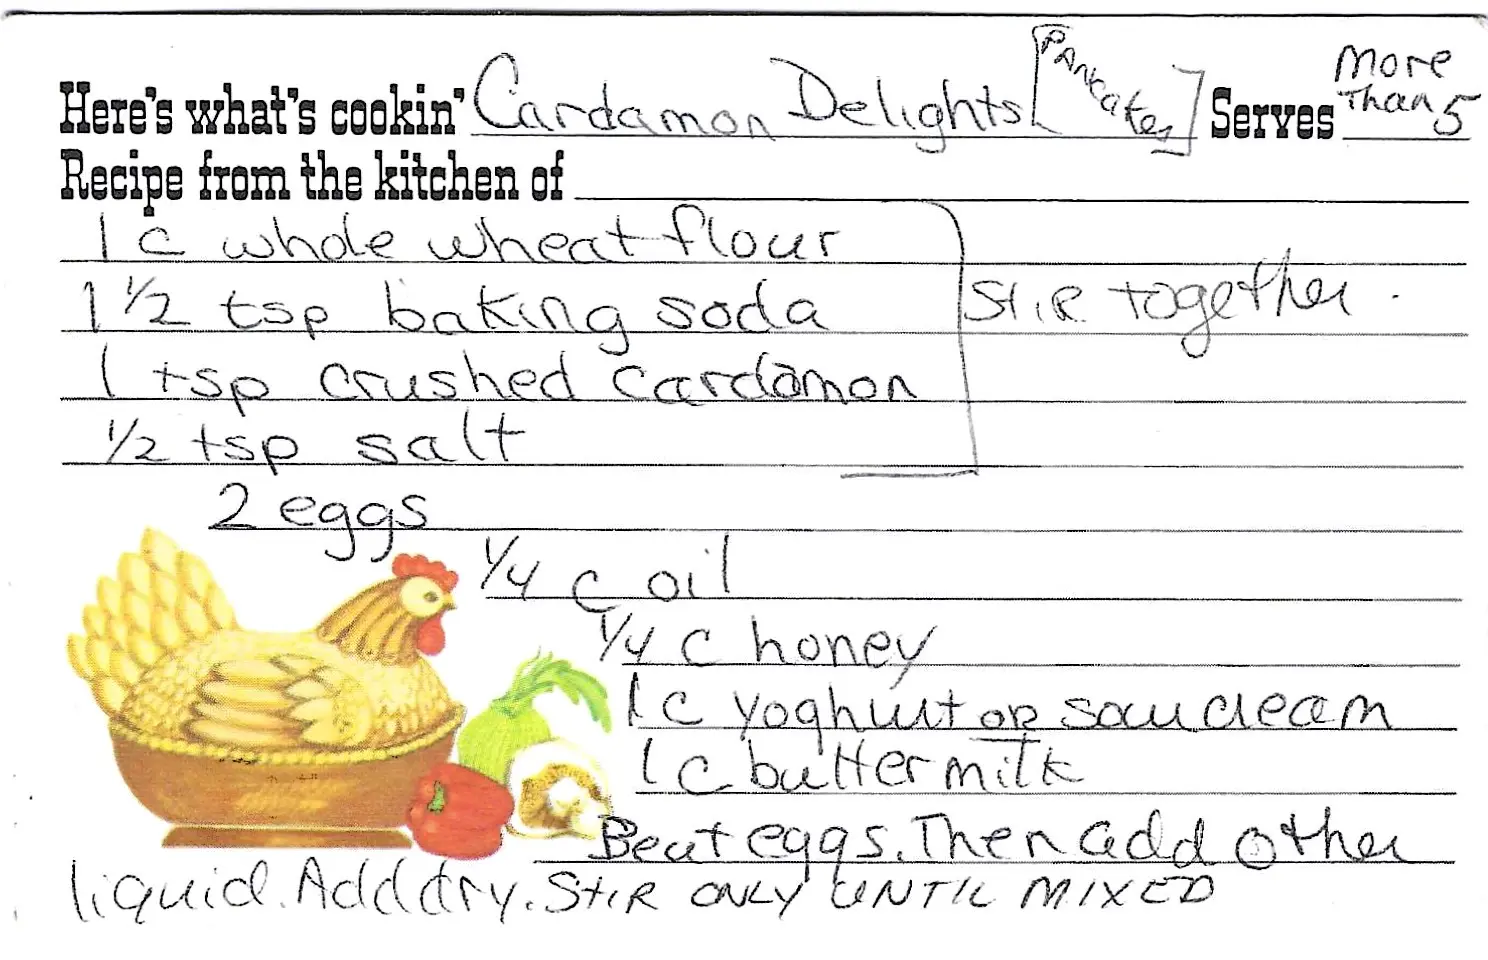 Here's what's cookin' Cardamon Delights [PANCakes] Serves More Than 5
Recipe from the kitchen of
1 c whole wheat flour
1 1/2 tsp baking soda
Stir together.
1 tsp crushed cardamon
1/2 tsp salt
2 eggs
1/4 c oil
1/4 c honey
1 c yoghurt or sour cream
1 c buttermilk
Beat eggs. Then add other
liquid. Add dry. Stir ONLY UNTIL MIXED